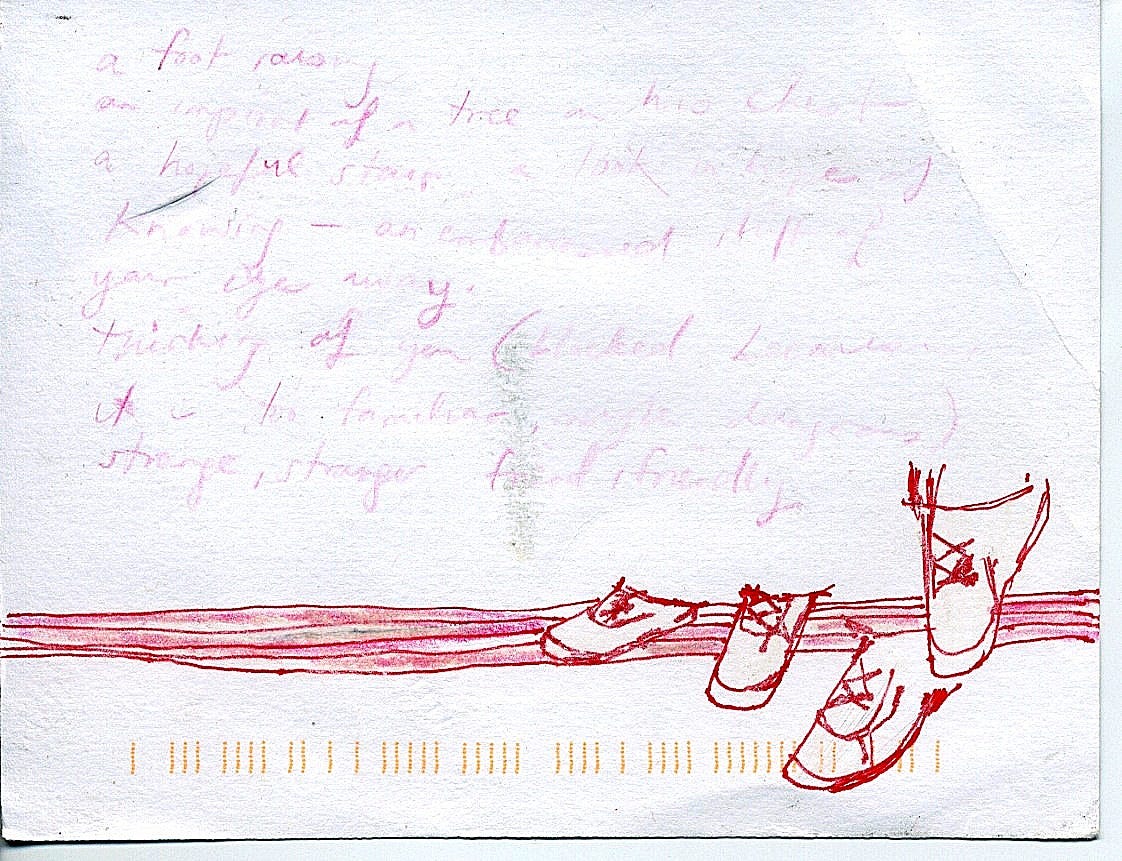 a foot raising
an imprint of a tree on his chest
a hopeful stranger, a look in hope of
knowing – an embarrassed shift of
your eye away.
thinking of you (blocked because
it is too familiar, maybe dangerous)
strange, stranger friend, friendly